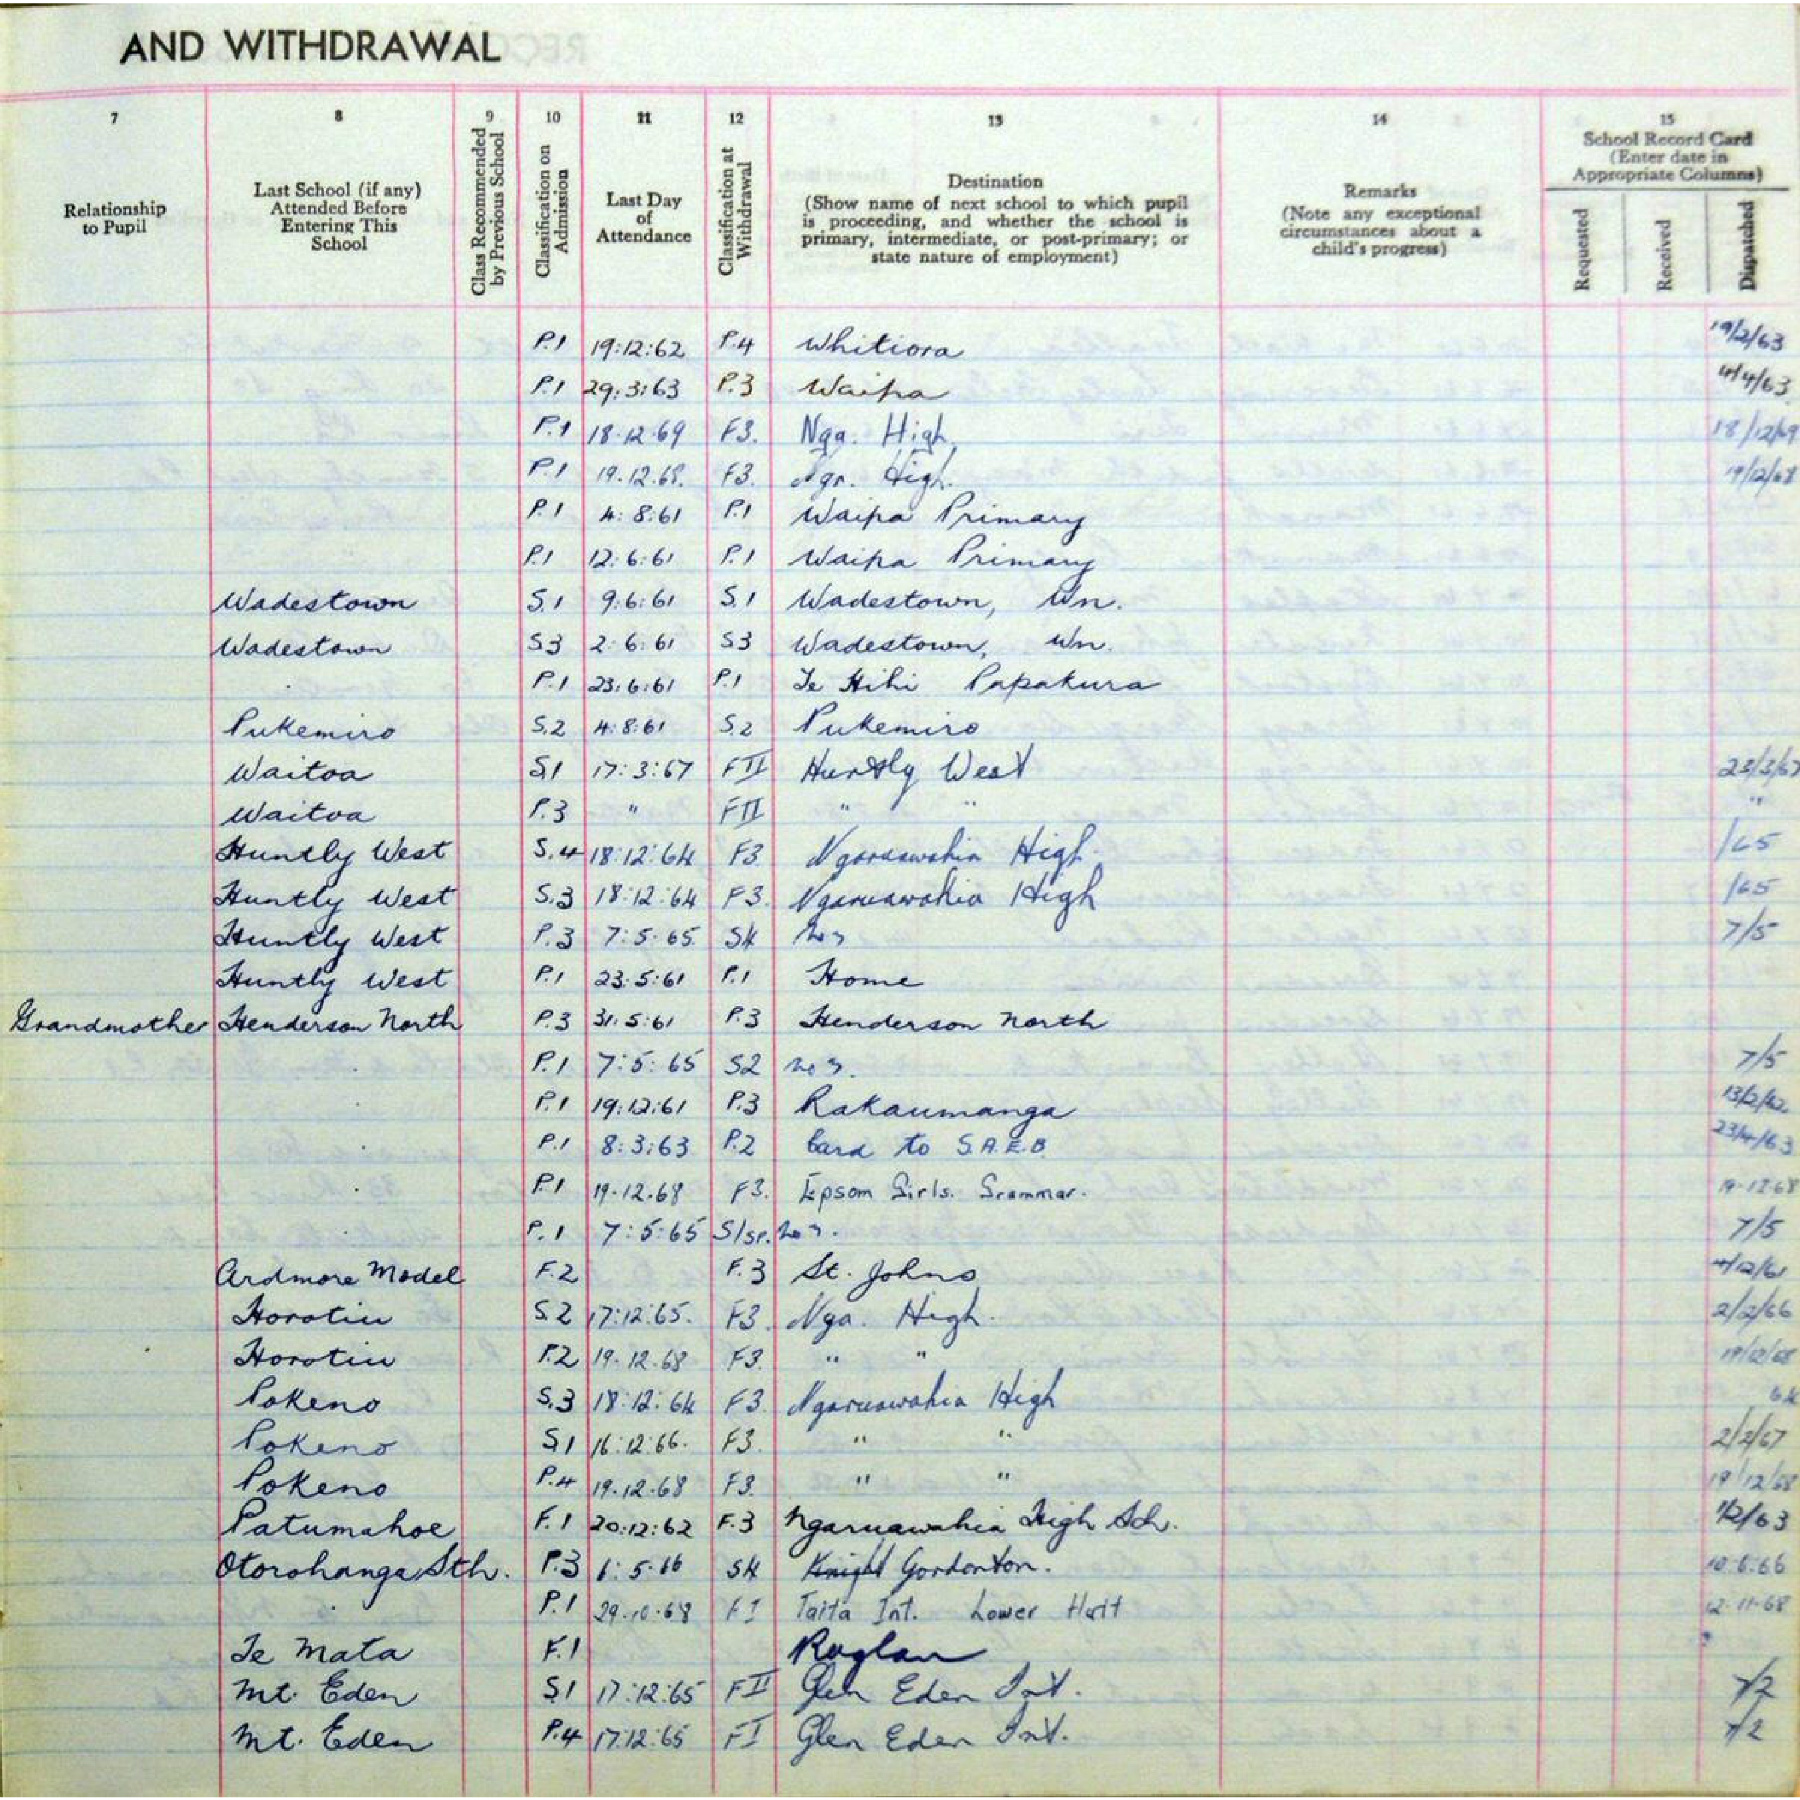 AND WITHDRAWAL
7 8 9 10 11 12 13 14 15
Relationship to Pupil
Last School (if any) Attended Before Entering This School
Class Recommended by Previous School
Classification on Admission
Last Day of Attendance
Classification at Withdrawal
Destination
(Show name of next school to which pupil is proceeding, and whether the school is primary, intermediate, or post-primary; or state nature of employment)
Remarks
(Note any exceptional circumstances about a child's progress)
School Record Card
(Enter date in Appropriate Columns)
Requested
Received
Dispatched
P.1 19:12:62 P.4 Whitiora 19/2/63
P.1 29:3:63 P.3 Waipa 4/4/63
P.1 18.12.69 F3. Nga. High. 18/12/69
P.1 19.12.68. F3. High. 19/12/68
P.1 4:8:61 P.1 Waipa Primary
P.1 12:6:61 P.1 Waipa Primary
Wadestown S.1 9:6:61 S.1 Wadestown, Wn.
Wadestown S3 2:6:61 S3 Wadestown, Wn.
P.1 23:6:61 P.1 Te Hihi Papakura
Pukemiro S.2 4:8:61 S.2 Pukemiro
Waitoa S.1 17:3:67 FII Huntly West 23/3/67
Waitoa P.3 " FII " " "
Huntly West S.4 18:12:64 F3 Ngaruawahia High. /65
Huntly West S.3 18:12:64 F3. Ngaruawahia High /65
Huntly West P.3 7:5:65. S4 7/5
Huntly West P.1 23:5:61 P.1 Home
Grandmother Henderson North P.3 31:5:61 P.3 Henderson North
P.1 7:5:65 S2 7/5
P.1 19:12:61 P.3 Rakaumanga 13/2/62
P.1 8:3:63 P.2 Card to S.A.E.B. 23/4/63
P.1 19.12.68 F3. Epsom Girls. Grammar. 19.12.68
P.1 7:5:65 S/sp. 7/5
Ardmore Model F.2 F.3 St. Johns 4/12/61
Horotiu S2 17:12:65. F3. Nga. High. 2/2/66
Horotiu P.2 19.12.68 F3. " " 19/12/68
Pokeno S.3 18:12:64 F3. Ngaruawahia High 64
Pokeno S1 16:12:66. F3. " " 2/2/67
Pokeno P.4 19.12.68 F3. " " 19/12/68
Patumahoe F.1 20:12:62 F.3 Ngaruawahia High Sch. 1/2/63
Otorohanga Sth. P.3 6:5:66 S4 Knight Gordonton. 10:6:66
P.1 29.10.68 FI Taita Int. Lower Hutt 12.11.68
Te Mata F.1 Raglan
Mt. Eden S1 17:12:65 FII Glen Eden Int. 7/2
Mt. Eden P.4 17.12.65 FI Glen Eden Int. 7/2